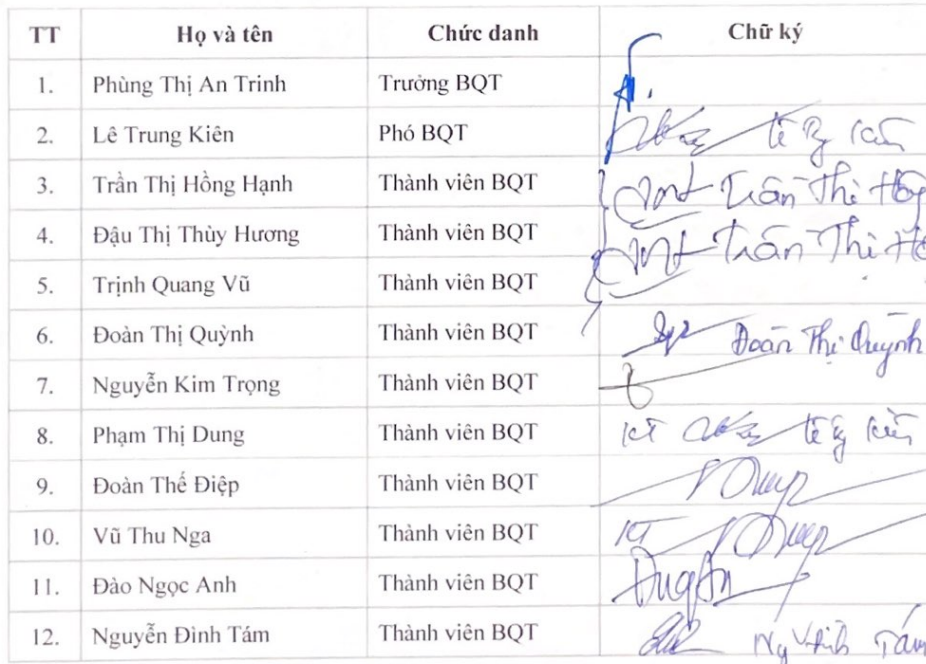 TT Họ và tên Chức danh Chữ ký
1. Phùng Thị An Trinh Trưởng BQT
2. Lê Trung Kiên Phó BQT
3. Trần Thị Hồng Hạnh Thành viên BQT Trần Thị Hồng
4. Đậu Thị Thùy Hương Thành viên BQT Trần Thị
5. Trịnh Quang Vũ Thành viên BQT
6. Đoàn Thị Quỳnh Thành viên BQT Đoàn Thị Quỳnh
7. Nguyễn Kim Trọng Thành viên BQT
8. Phạm Thị Dung Thành viên BQT KT
9. Đoàn Thế Điệp Thành viên BQT
10. Vũ Thu Nga Thành viên BQT KT
11. Đào Ngọc Anh Thành viên BQT
12. Nguyễn Đình Tám Thành viên BQT Tám